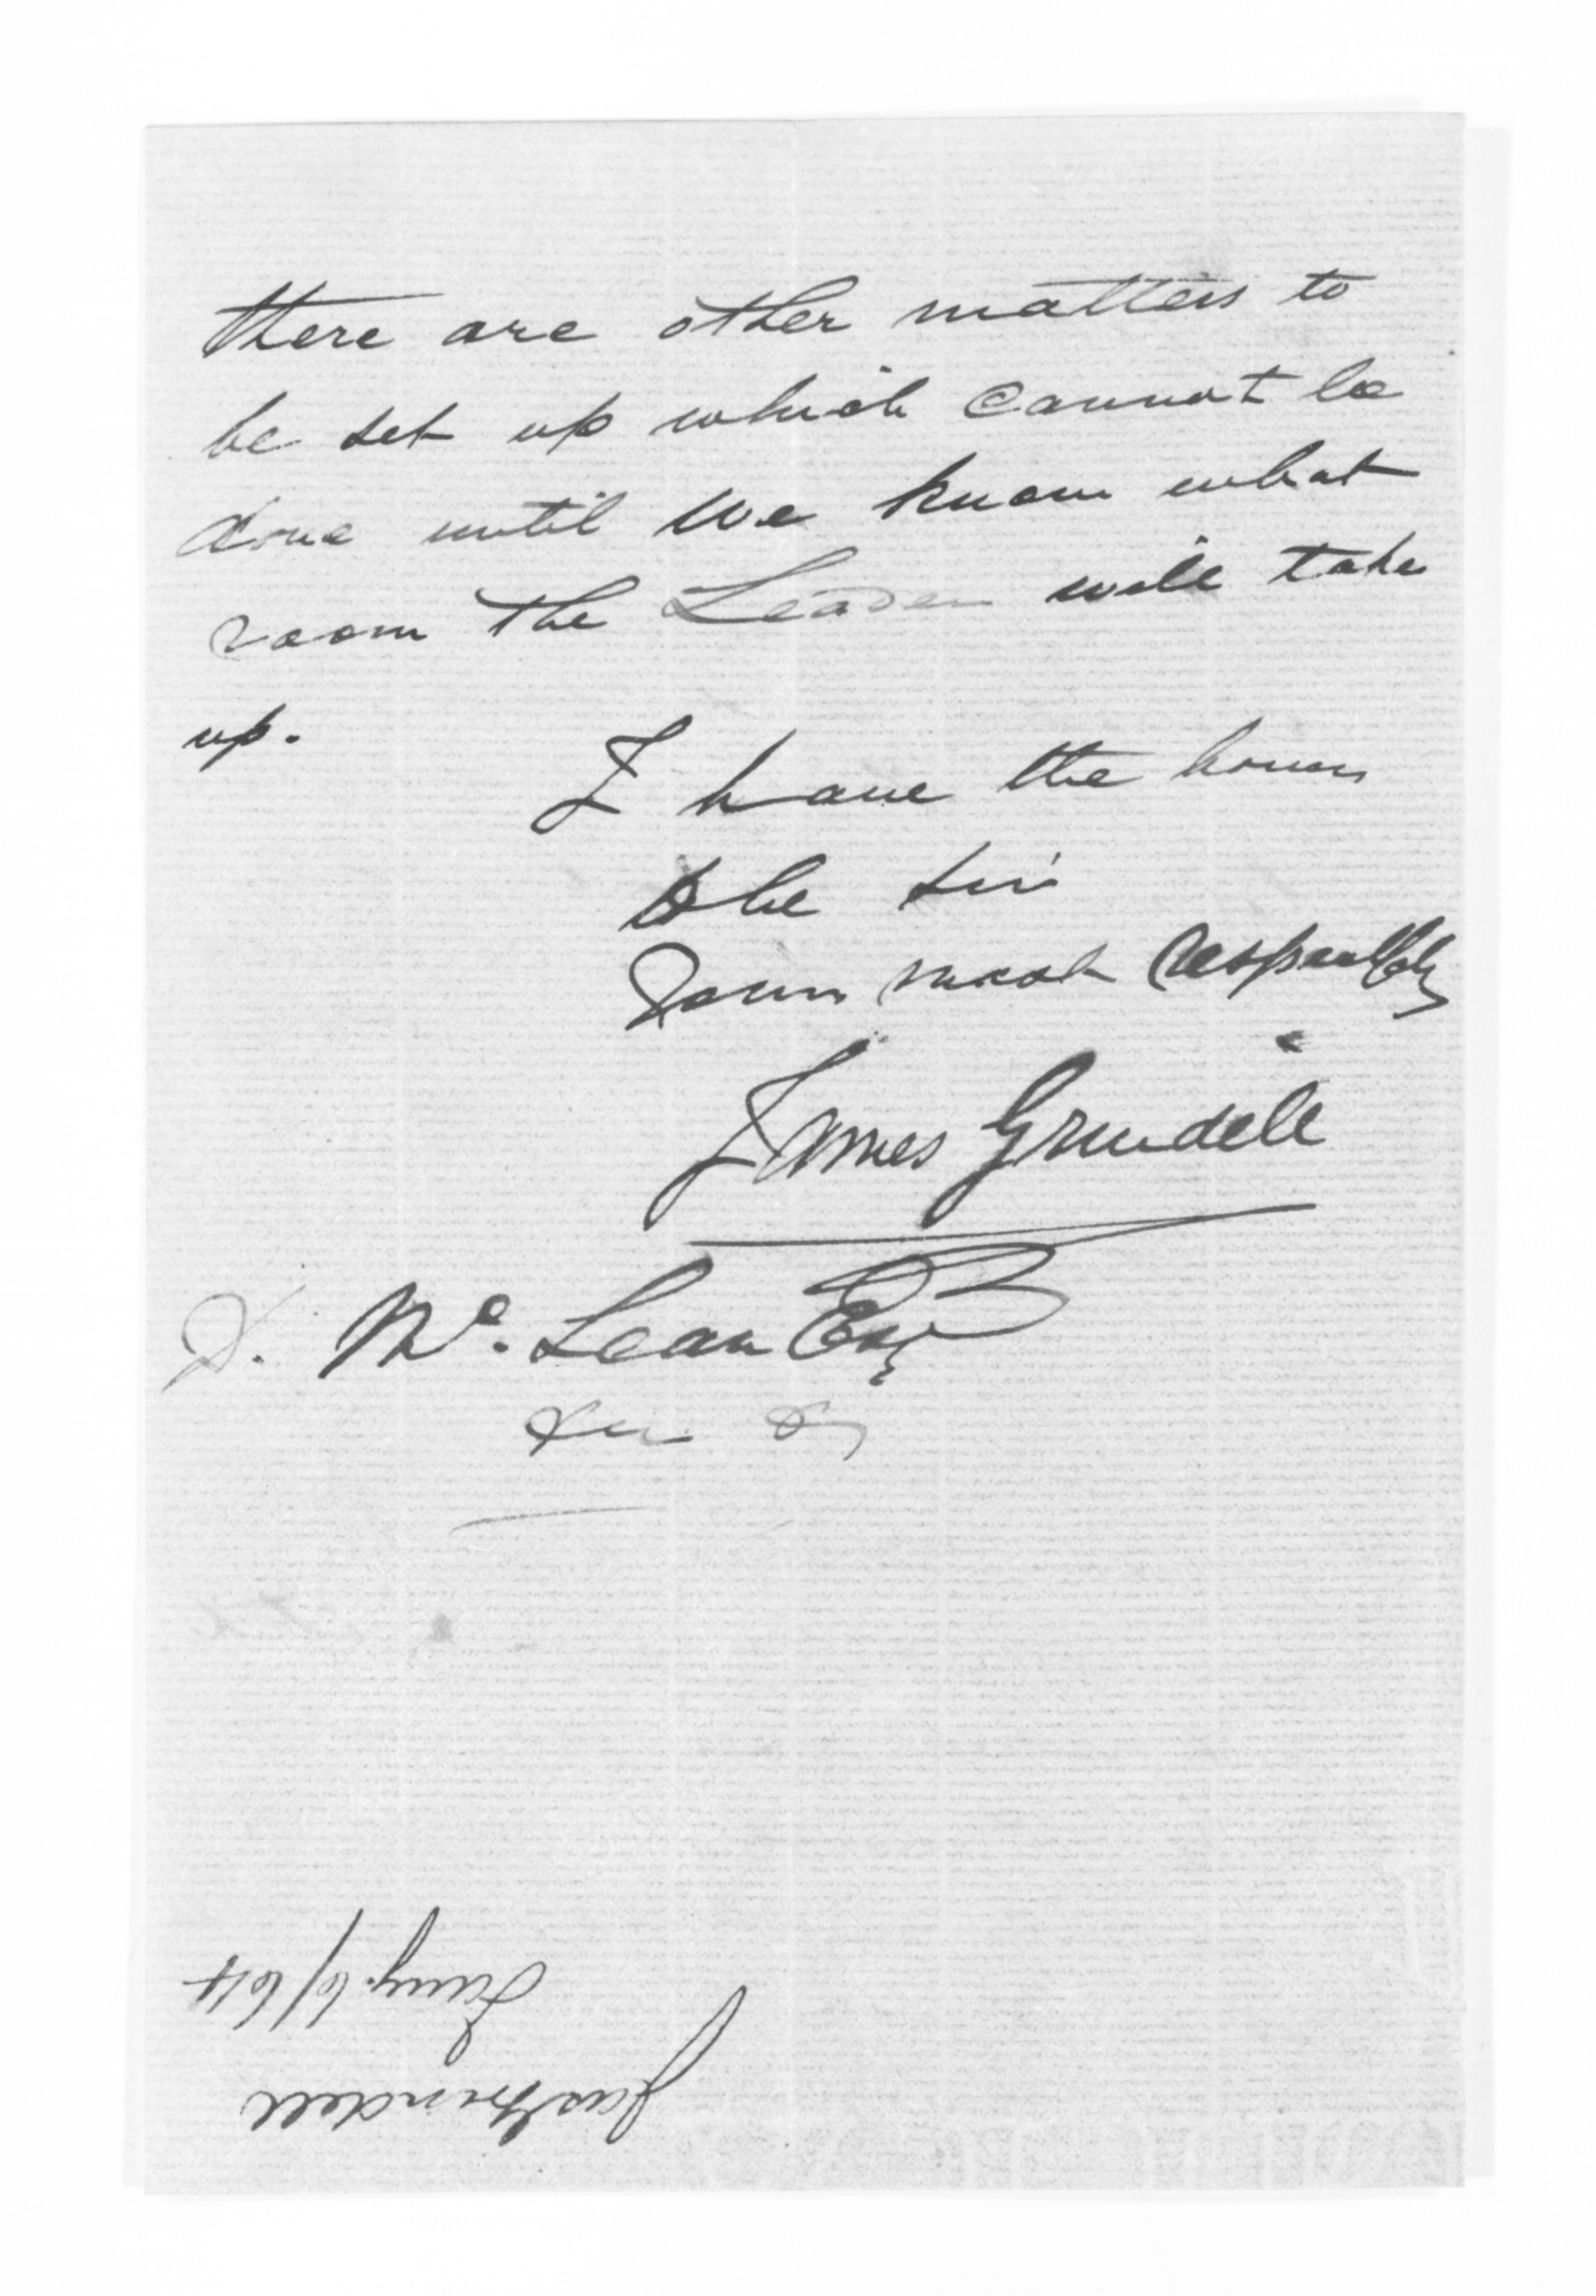 there are other matters to
be set up which cannot be
done until we know what
room the Leader will take
up.
I have the honor
to be Sir
Yours most respectfully
James Grindell
D. Mc. Lean Esqr
&c &c
Jas Grindell
Jany. 6/64